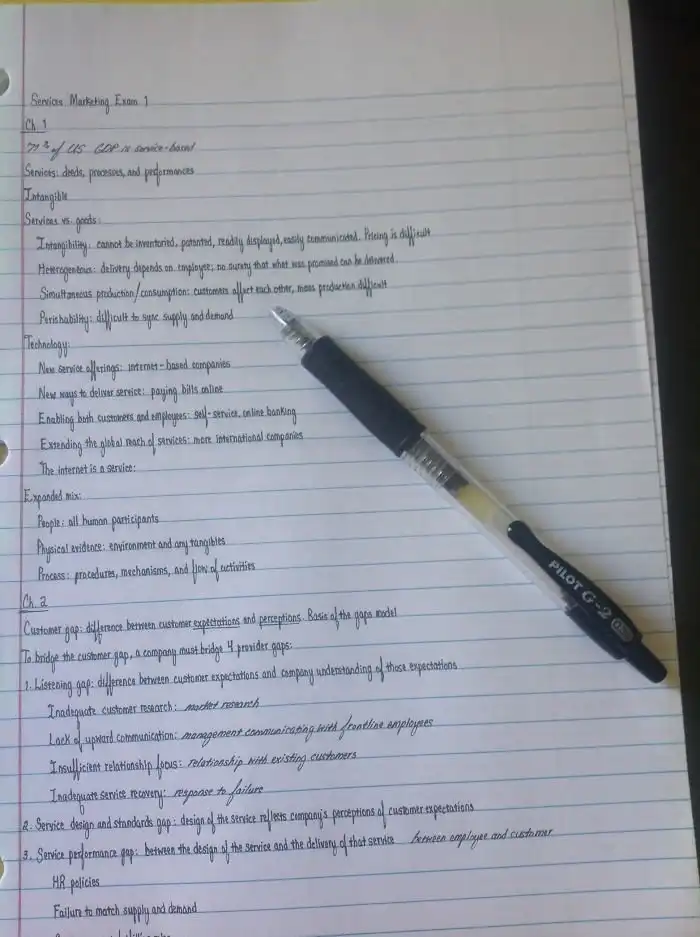 Services Marketing Exam 1
Ch. 1
of US GDP is service-based
Services: deeds, processes, and performances
Intangible
Services vs. goods:
Intangibility: cannot be inventoried, patented, readily displayed, easily communicated. Pricing is difficult
Heterogeneous: delivery depends on employee; no surety that what was promised can be delivered.
Simultaneous production/consumption: customers affect each other, mass production difficult
Perishability: difficult to sync supply and demand
Technology:
New service offerings: internet-based companies
New ways to deliver service: paying bills online
Enabling both customers and employees: self-service, online banking
Extending the global reach of services: more international companies
The internet is a service:
Expanded mix:
People: all human participants
Physical evidence: environment and any tangibles
Process: procedures, mechanisms, and flow of activities
Ch. 2
Customer gap: difference between customer expectations and perceptions. Basis of the gaps model
To bridge the customer gap, a company must bridge 4 provider gaps:
1. Listening gap: difference between customer expectations and company understanding of those expectations
Inadequate customer research: market research
Lack of upward communication: management communicating with frontline employees
Insufficient relationship focus: relationship with existing customers
Inadequate service recovery: response to failure
2. Service design and standards gap: design of the service reflects company's perceptions of customer expectations
3. Service performance gap: between the design of the service and the delivery of that service between employee and customer
HR policies
Failure to match supply and demand
PILOT G-2